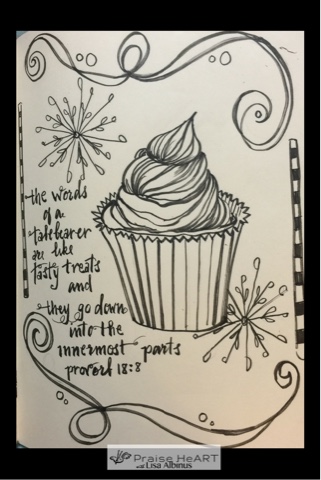 the words
of a
talebearer
are like
tasty treats
and
they go down
into the
innermost parts
proverb 18:8
Praise HeART
Lisa Albinus